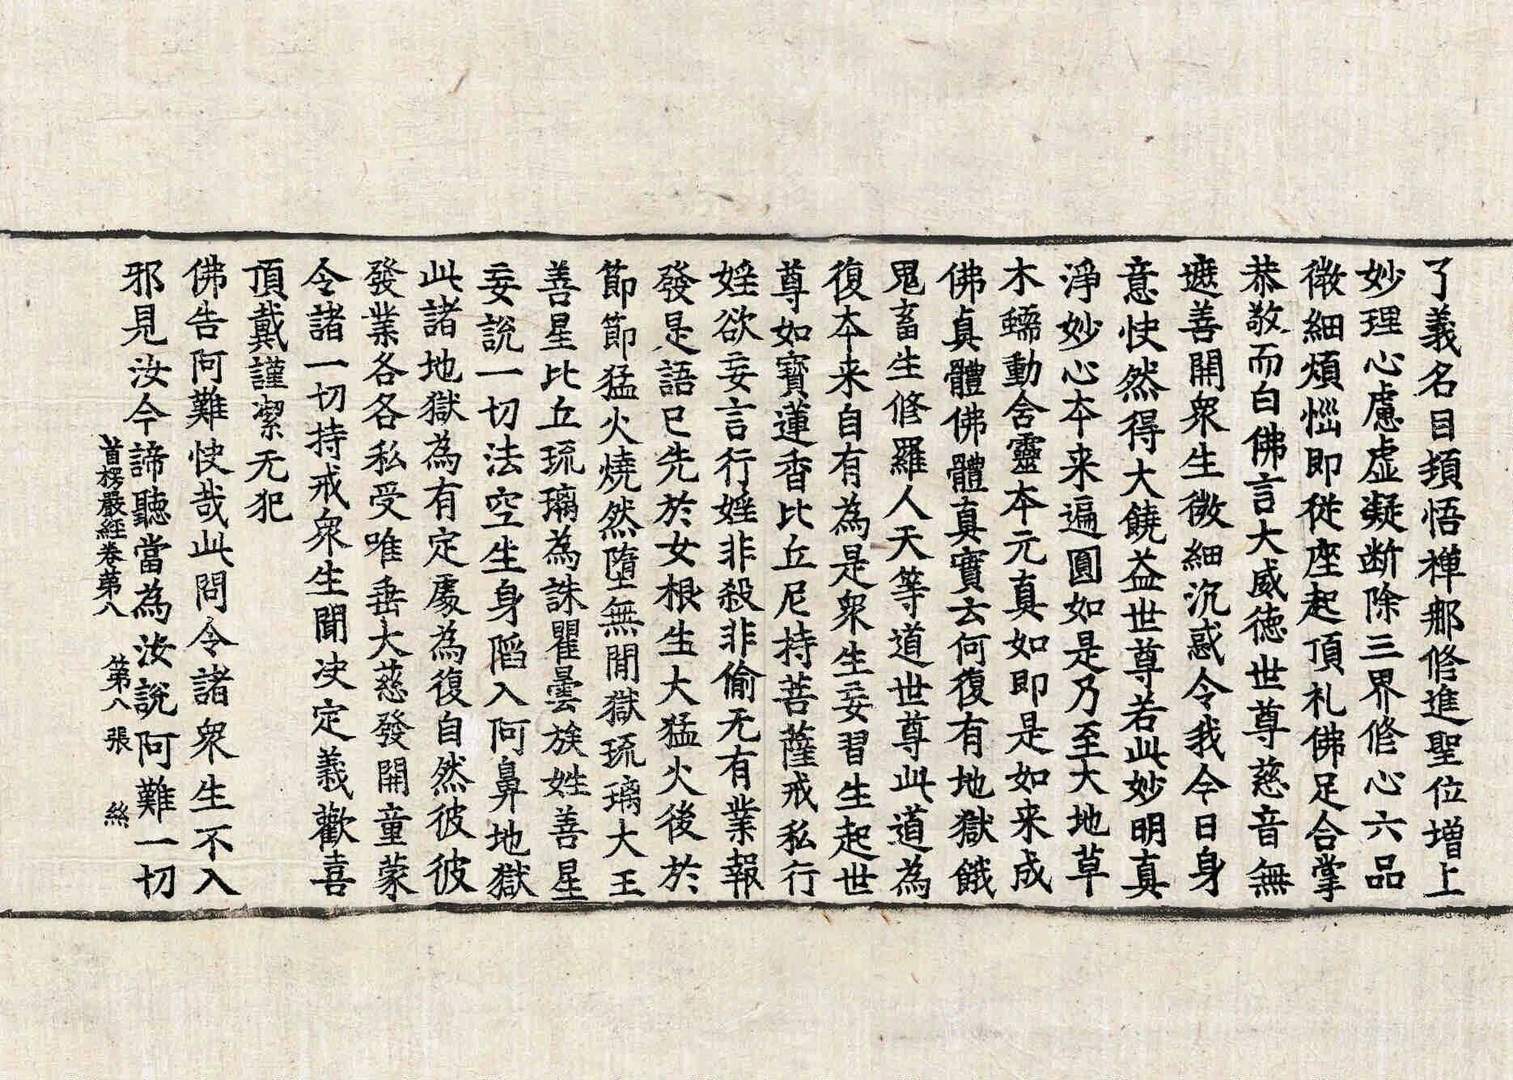 了義名目頓悟禪那修進聖位增上
妙理心慮虛凝断除三界修心六品
微細煩惱即從座起頂礼佛足合掌
恭敬而白佛言大威德世尊慈音無
遮善開衆生微細沉惑令我今日身
意快然得大饒益世尊若此妙明真
淨妙心本来遍圓如是乃至大地草
木蠕動含靈本元真如即是如来成
佛真體佛體真實云何復有地獄餓
鬼畜生修羅人天等道世尊此道為
復本来自有為是衆生妄習生起世
尊如寶蓮香比丘尼持菩薩戒私行
婬欲妄言行婬非殺非偷无有業報
發是語已先於女根生大猛火後於
節節猛火燒然墮無間獄琉璃大王
善星比丘琉璃為誅瞿曇族姓善星
妄說一切法空生身陷入阿鼻地獄
此諸地獄為有定處為復自然彼彼
發業各各私受唯垂大慈發開童蒙
令諸一切持戒衆生聞决定義歡喜
頂戴謹潔无犯
佛告阿難快哉此問令諸衆生不入
邪見汝今諦聽當為汝說阿難一切
首楞嚴經卷第八 第八張 絲